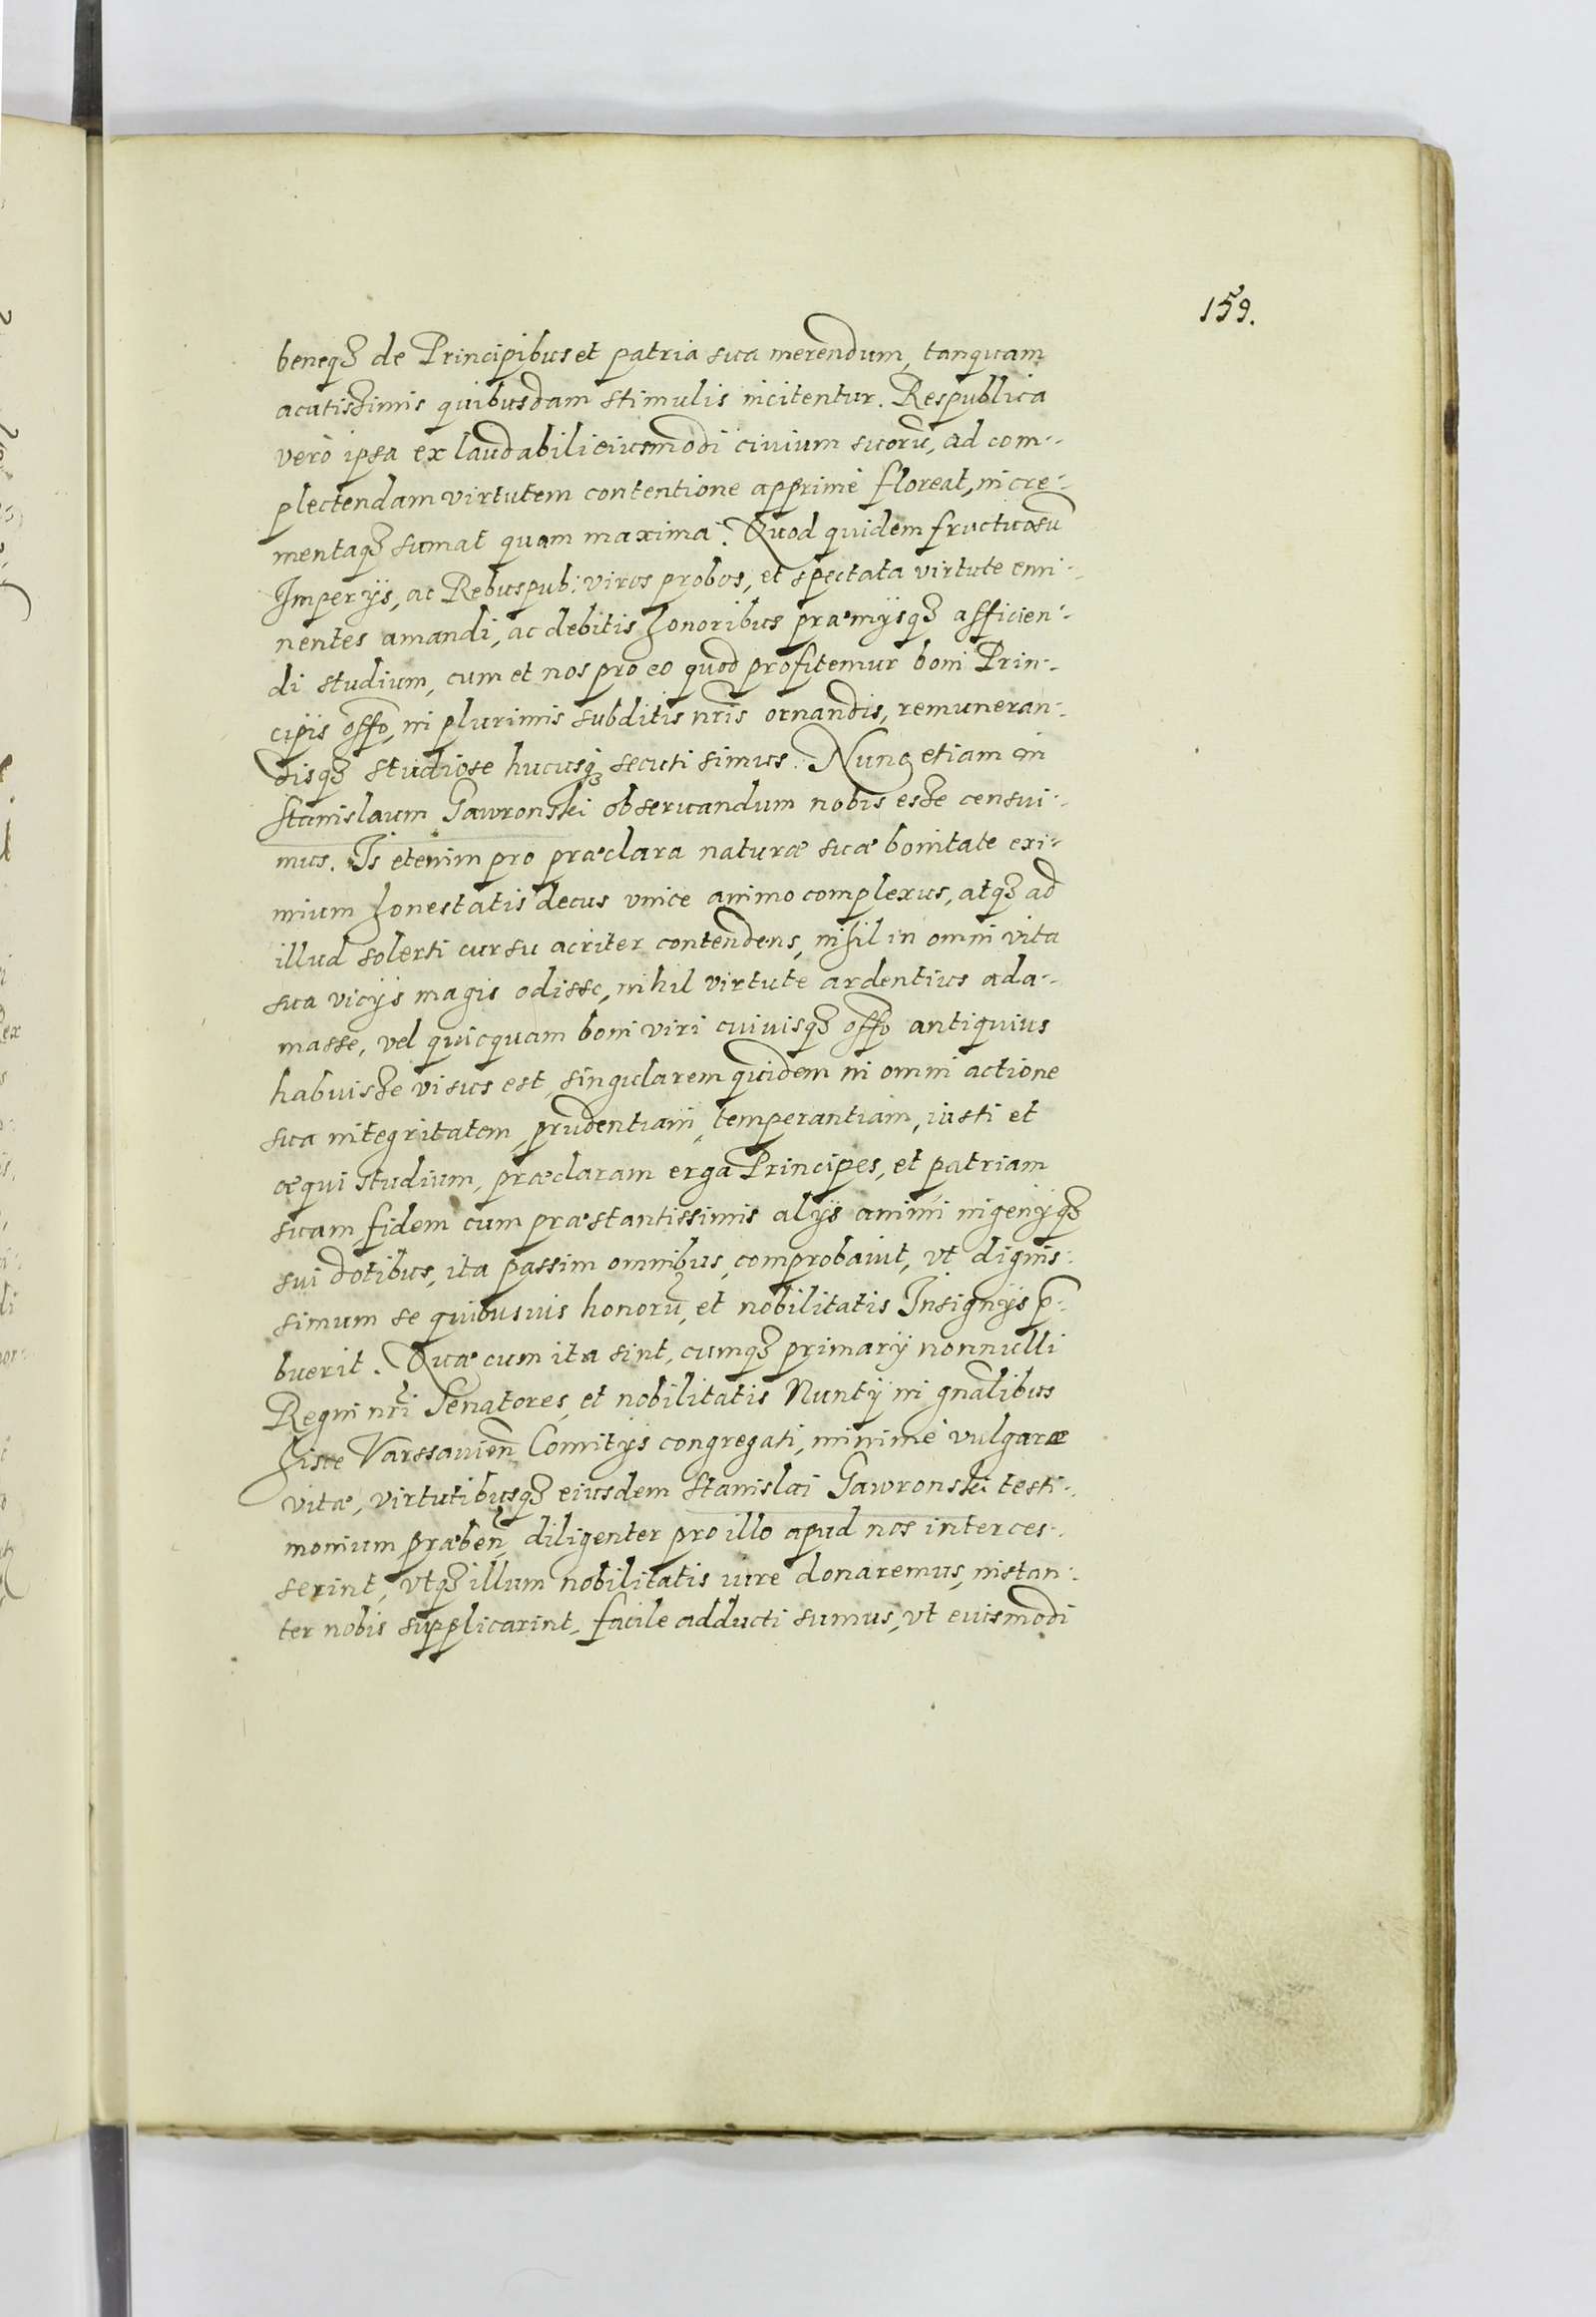 159.
beneq3 de Principibus et patria sua merendum, tanquam
acutissimis quibusdam stimulis incitentur. Respublica
verò ipsa ex laudabili eiusmodi ciuium suorũ, ad com-
plectendam virtutem contentione apprimè floreat, incre-
mentaq3 sumat quam maxima. Quod quidem fructuosũ
Imperijs, ac Rebuspub: viros probos, et spectata virtute emi-
nentes amandi, ac debitis honoribus præmijsq3 afficien-
di studium, cum et nos pro eo quod profitemur boni Prin-
cipis offo, in plurimis subditis nr̃is ornandis, remuneran-
disq3 studiose hucusq3 secuti simus. Nunc etiam in
Stanislaum Gawronski obseruandum nobis esse censui-
mus. Is etenim pro præclara naturæ suæ bonitate exi-
mium honestatis decus vnice animo complexus, atq3 ad
illud solerti cursu acriter contendens, nihil in omni vita
sua vicijs magis odisse, nihil virtute ardentius ada-
masse, vel quicquam boni viri cuiuisq3 offo antiquius
habuisse visus est, singularem quidem in omni actione
sua integritatem, prudentiam, temperantiam, iusti et
æqui studium, præclaram erga Principes, et patriam
suam fidem cum præstantissimis alijs animi ingenijq3
sui dotibus, ita passim omnibus comprobauit, vt dignis-
simum se quibusuis honorũ, et nobilitatis Insignijs p̃-
buerit. Quæ cum ita sint, cumq3 primarij nonnulli
Regni nr̃i Senatores, et nobilitatis Nuntij in gnãlibus
hisce Varssauien̄ Comitijs congregati, minimè vulgaræ
vitæ, virtutibusq3 eiusdem Stanislai Gawronski testi-
monium præben̄, diligenter pro illo apud nos interces-
serint, vtq3 illum nobilitatis iure donaremus, instan-
ter nobis supplicarint, facile adducti sumus, vt eiusmodi